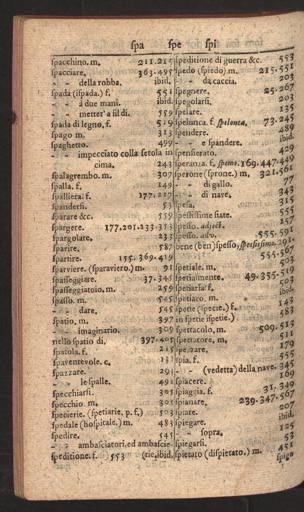 spa spe spi
spacchino. m. 211.215
spacciare. 363.495
- - della robba. ibid.
spada (ispada.) f. 551
- - à due mani. ibid.
- - metter' a fil di. 559
spada di legno, f. 519
spago m. 313
spaghetto. 499
- - impecciato colla setola in
cima. 243
spalagrembo. m. 307
spalla. f. 149
spalliera. f. 177.217
spandersi. 53
sparare &c. 539
spargere. 177.201.233.313
spargolare. 233
sparire. 587
spartire. 155.369.419
sparviere. (sparaviero.) m. 91
spasseggiare. 37.345
spasseggiatoio. m. 259
spasso. m. 545
- - dare. 545
spatio, m. 397
- - imaginario. 309
nello spatio di. 397.405
spatola. f. 215
spaventevole. c. 13
spazzare. 291
- - le spalle. 491
specchiarsi. 303
specchio. m. 301
specierie. (spetiarie, p. f.) 503
spedale (hospitale.) m. 483
spedire. 545
- - ambasciatori, ed ambascie-
speditione. f. 553 (rie, ibid.
speditione di guerra &c. 553
spedo (spiedo) m. 215.551
- - da caccia. 203
spegnere. 25.267
spegolarsi. 203
spelare. 135
spelonca. f. spelonca. 73.245
spendere. 489
- - e spandere. ibid.
pensierato. 429
speranza. f. speme. 169.447.449
sperone (sprone.) m, 321.561
- - di gallo. 77
- - di nave. 343
spesa. 315
spessissime fiate. 555
spesso. adject. 157
spesso. adv. 555.591
bene (ben) spesso, spessissimo. 291.
555.567
spetiale. m. 503
spetialmente. 49.355.519
spetiaria. f. 503
spetiaro. m. ibid.
spetie (specie.) f. 143
in spetie ispetie.) 583
spettacolo, m. 509.513
spettatore, m. 511
spezzare. 179
spia, f. 555
- - (vedetta) della nave. 345
spiacere. 169
spiaggia, f. 31.349
spianare. 239.347.567
spiare. 207
spiegare. ibid.
- - sopra. 125
spiegarsi. 53
spietato (dispietato.) m. 451
spigo